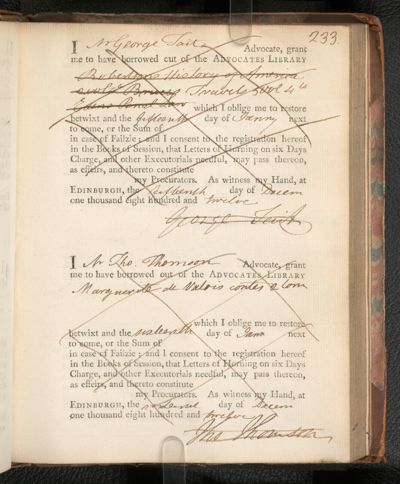 233.
I Mr George Tait Advocate, grant
me to have borrowed out of the ADVOCATES LIBRARY
Robertsons History of America
Bruces Travels 5 vol 4to
which I oblige me to restore
betwixt and the fifteenth day of Janry next
to come, or the Sum of
in case of Failzie; and I consent to the registration hereof
in the Books of Session, that Letters of Horning on six Days
Charge, and other Executorials needful, may pass thereon,
as effeirs, and thereto constitute
my Procurators. As witness my Hand, at
EDINBURGH, the fifteenth day of Decem
one thousand eight hundred and twelve
George Tait
I Mr Tho. Thomson Advocate, grant
me to have borrowed out of the ADVOCATES LIBRARY
Marguerite de Valois contes 2 tom
which I oblige me to restore
betwixt and the sixteenth day of Janr next
to come, or the Sum of
in case of Failzie; and I consent to the registration hereof
in the Books of Session, that Letters of Horning on six Days
Charge, and other Executorials needful, may pass thereon,
as effeirs, and thereto constitute
my Procurators. As witness my Hand, at
EDINBURGH, the day of Decem
one thousand eight hundred and twelve
Tho Thomson